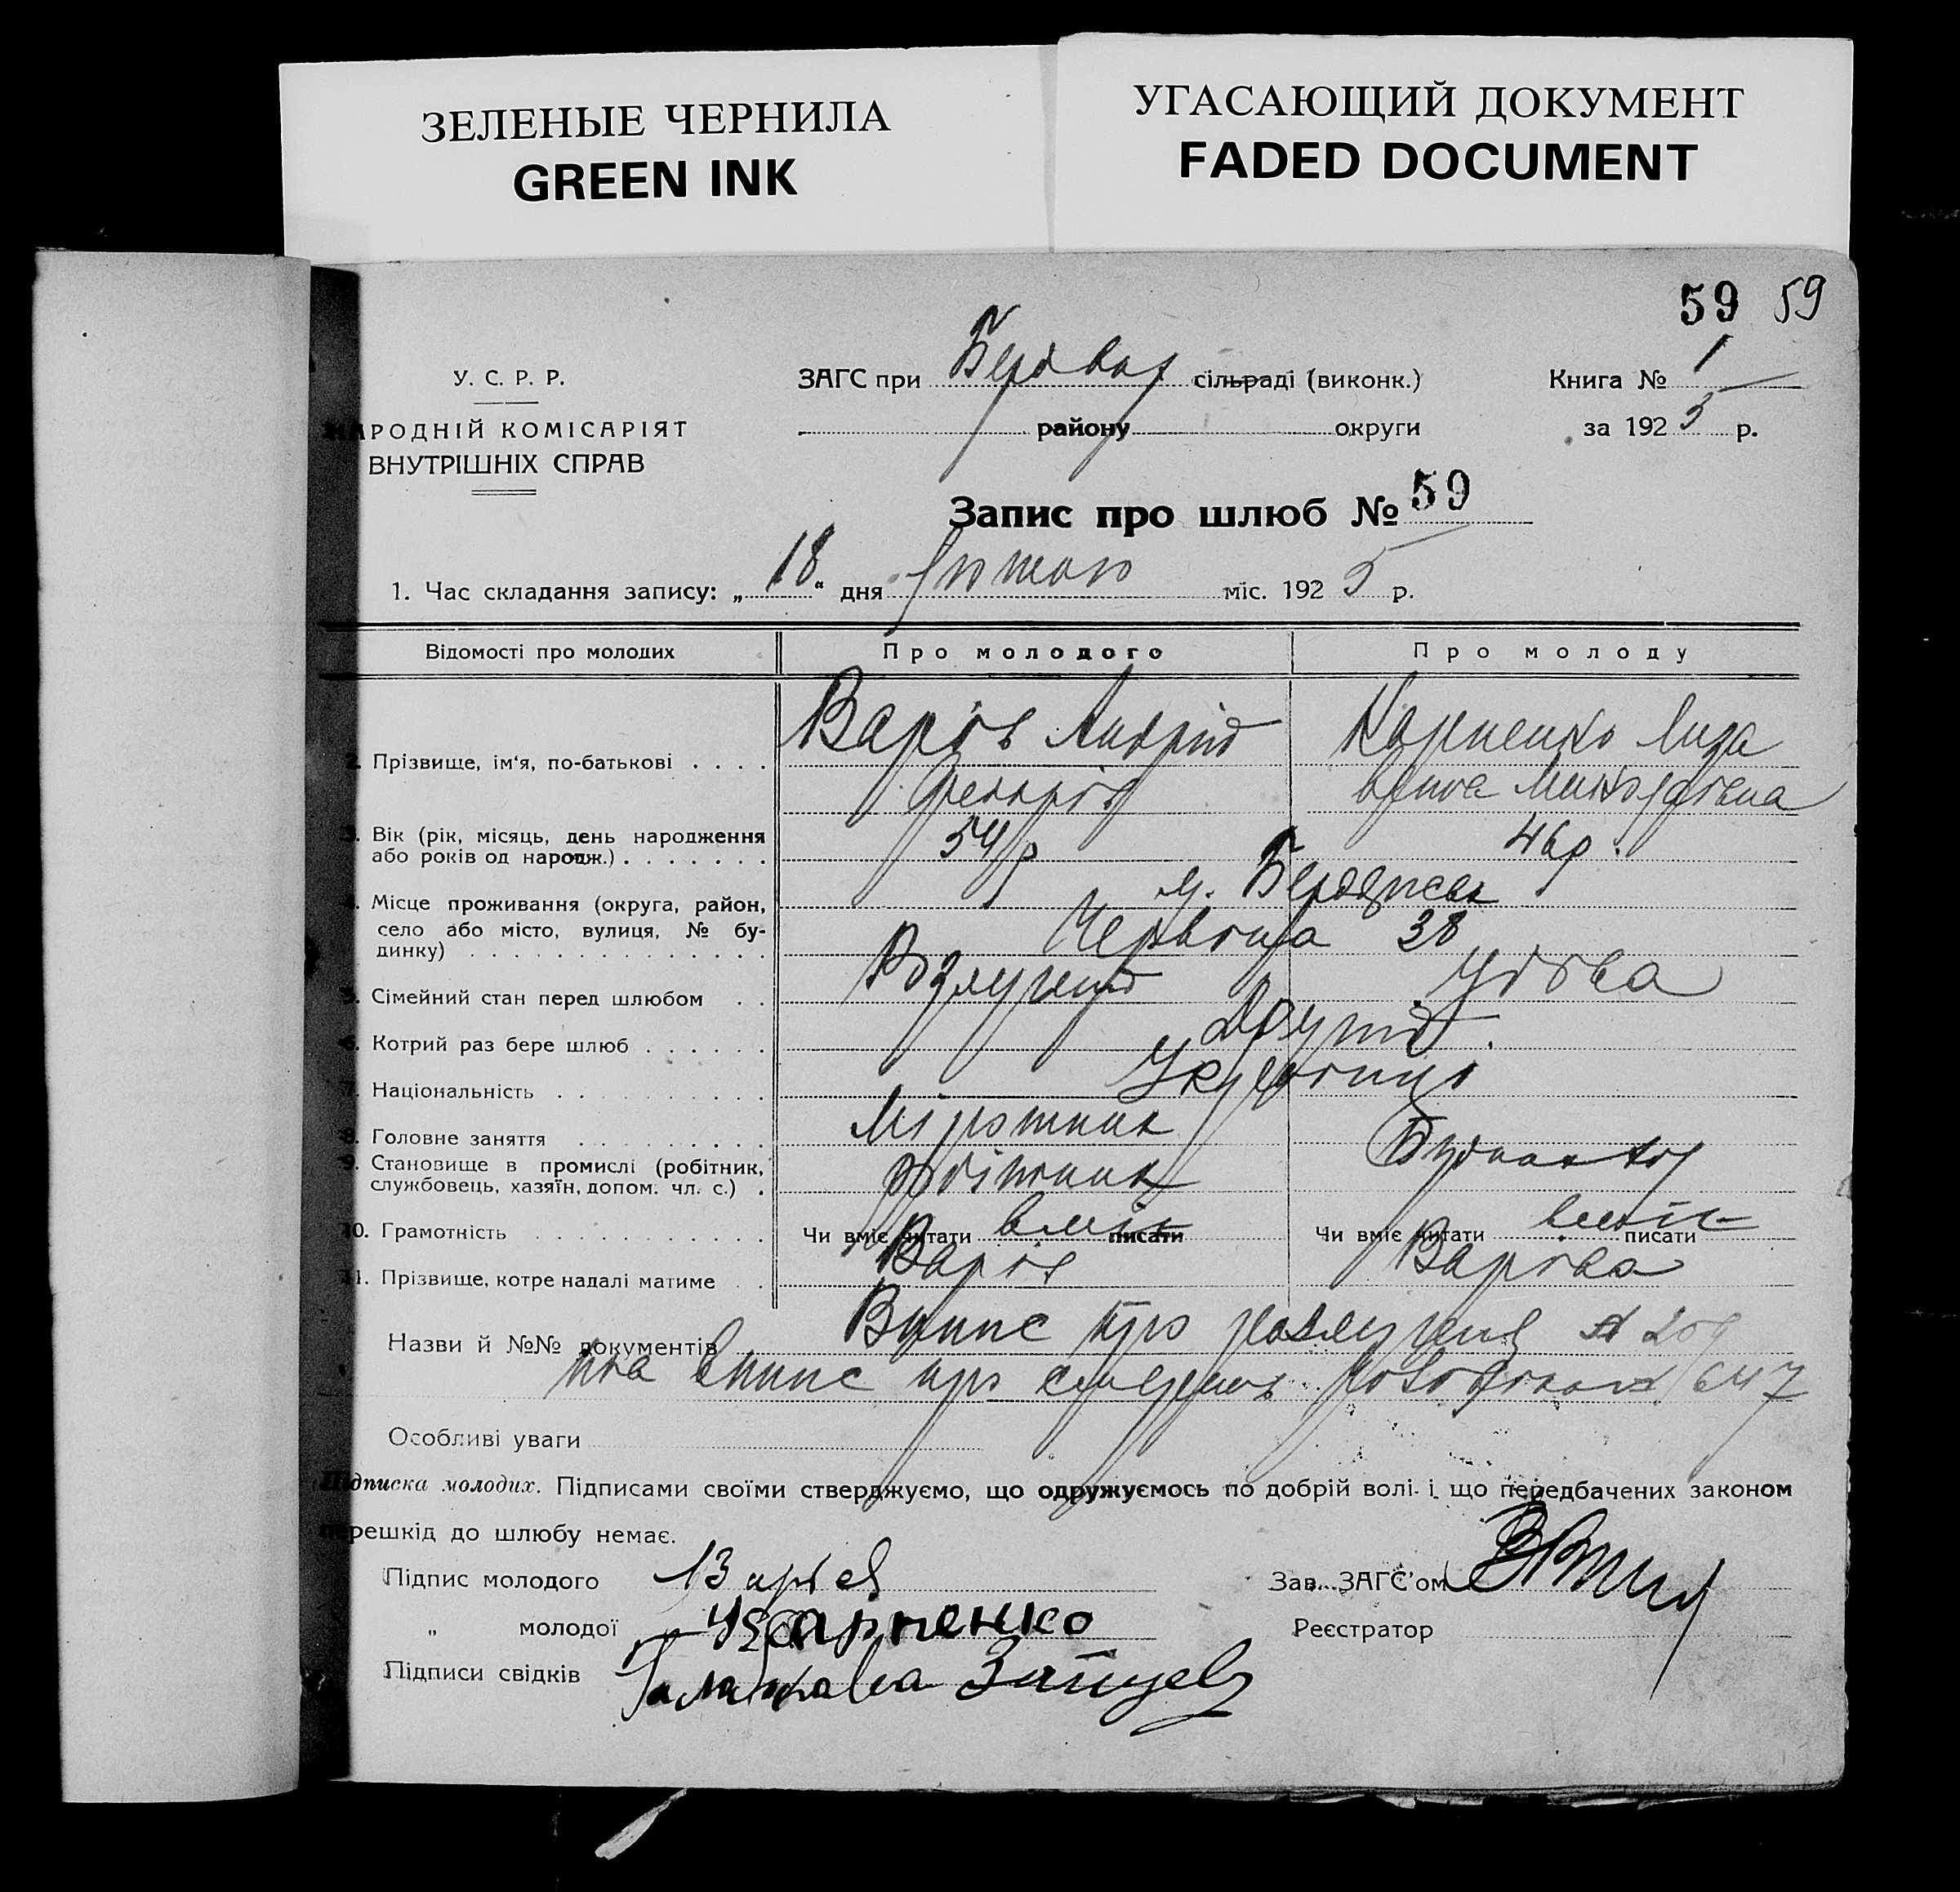 ЗЕЛЕНЫЕ ЧЕРНИЛА
GREEN INK
УГАСАЮЩИЙ ДОКУМЕНТ
FADED DOCUMENT
59 59
У. С. Р. Р.
НАРОДНІЙ КОМІСАРІЯТ
ВНУТРІШНІХ СПРАВ
ЗАГС при сільраді (виконк.)
району округи
Книга № 1
за 1925 р.
Запис про шлюб № 59
1. Час складання запису: „18“ дня лютого міс. 1925 р.
Відомості про молодих Про молодого Про молоду
2. Прізвище, ім'я, по-батькові Варів Андрій Карпенко Лиза
3. Вік (рік, місяць, день народження
або років од народж.) 54 р 46 р.
4. Місце проживання (округа, район,
село або місто, вулиця, № бу-
динку) 38
5. Сімейний стан перед шлюбом Розлучений Удова
6. Котрий раз бере шлюб Другий.
7. Національність Українці
8. Головне заняття Мірошник
9. Становище в промислі (робітник,
службовець, хазяїн, допом. чл. с.) робітник
10. Грамотність Чи вміє читати вміє писати Чи вміє читати вміє писати
11. Прізвище, котре надалі матиме Варів Варіва
Назви й №№ документів Випис про розлученя № 209
та Випис про 647
Особливі уваги
Підписка молодих. Підписами своїми стверджуємо, що одружуємось по добрій волі і що передбачених законом
перешкід до шлюбу немає.
Підпис молодого
„ молодої Карпенко
Підписи свідків
Зав. ЗАГС'ом
Реєстратор